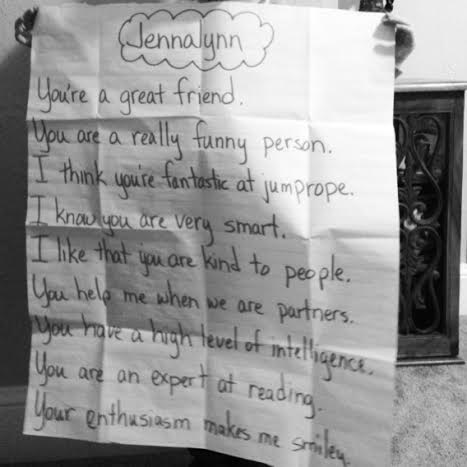 Jennalynn
You're a great friend.
You are a really funny person.
I think you're fantastic at jumprope.
I know you are very smart.
I like that you are kind to people.
You help me when we are partners.
You have a high level of intelligence.
You are an expert at reading.
Your enthusiasm makes me smiley.